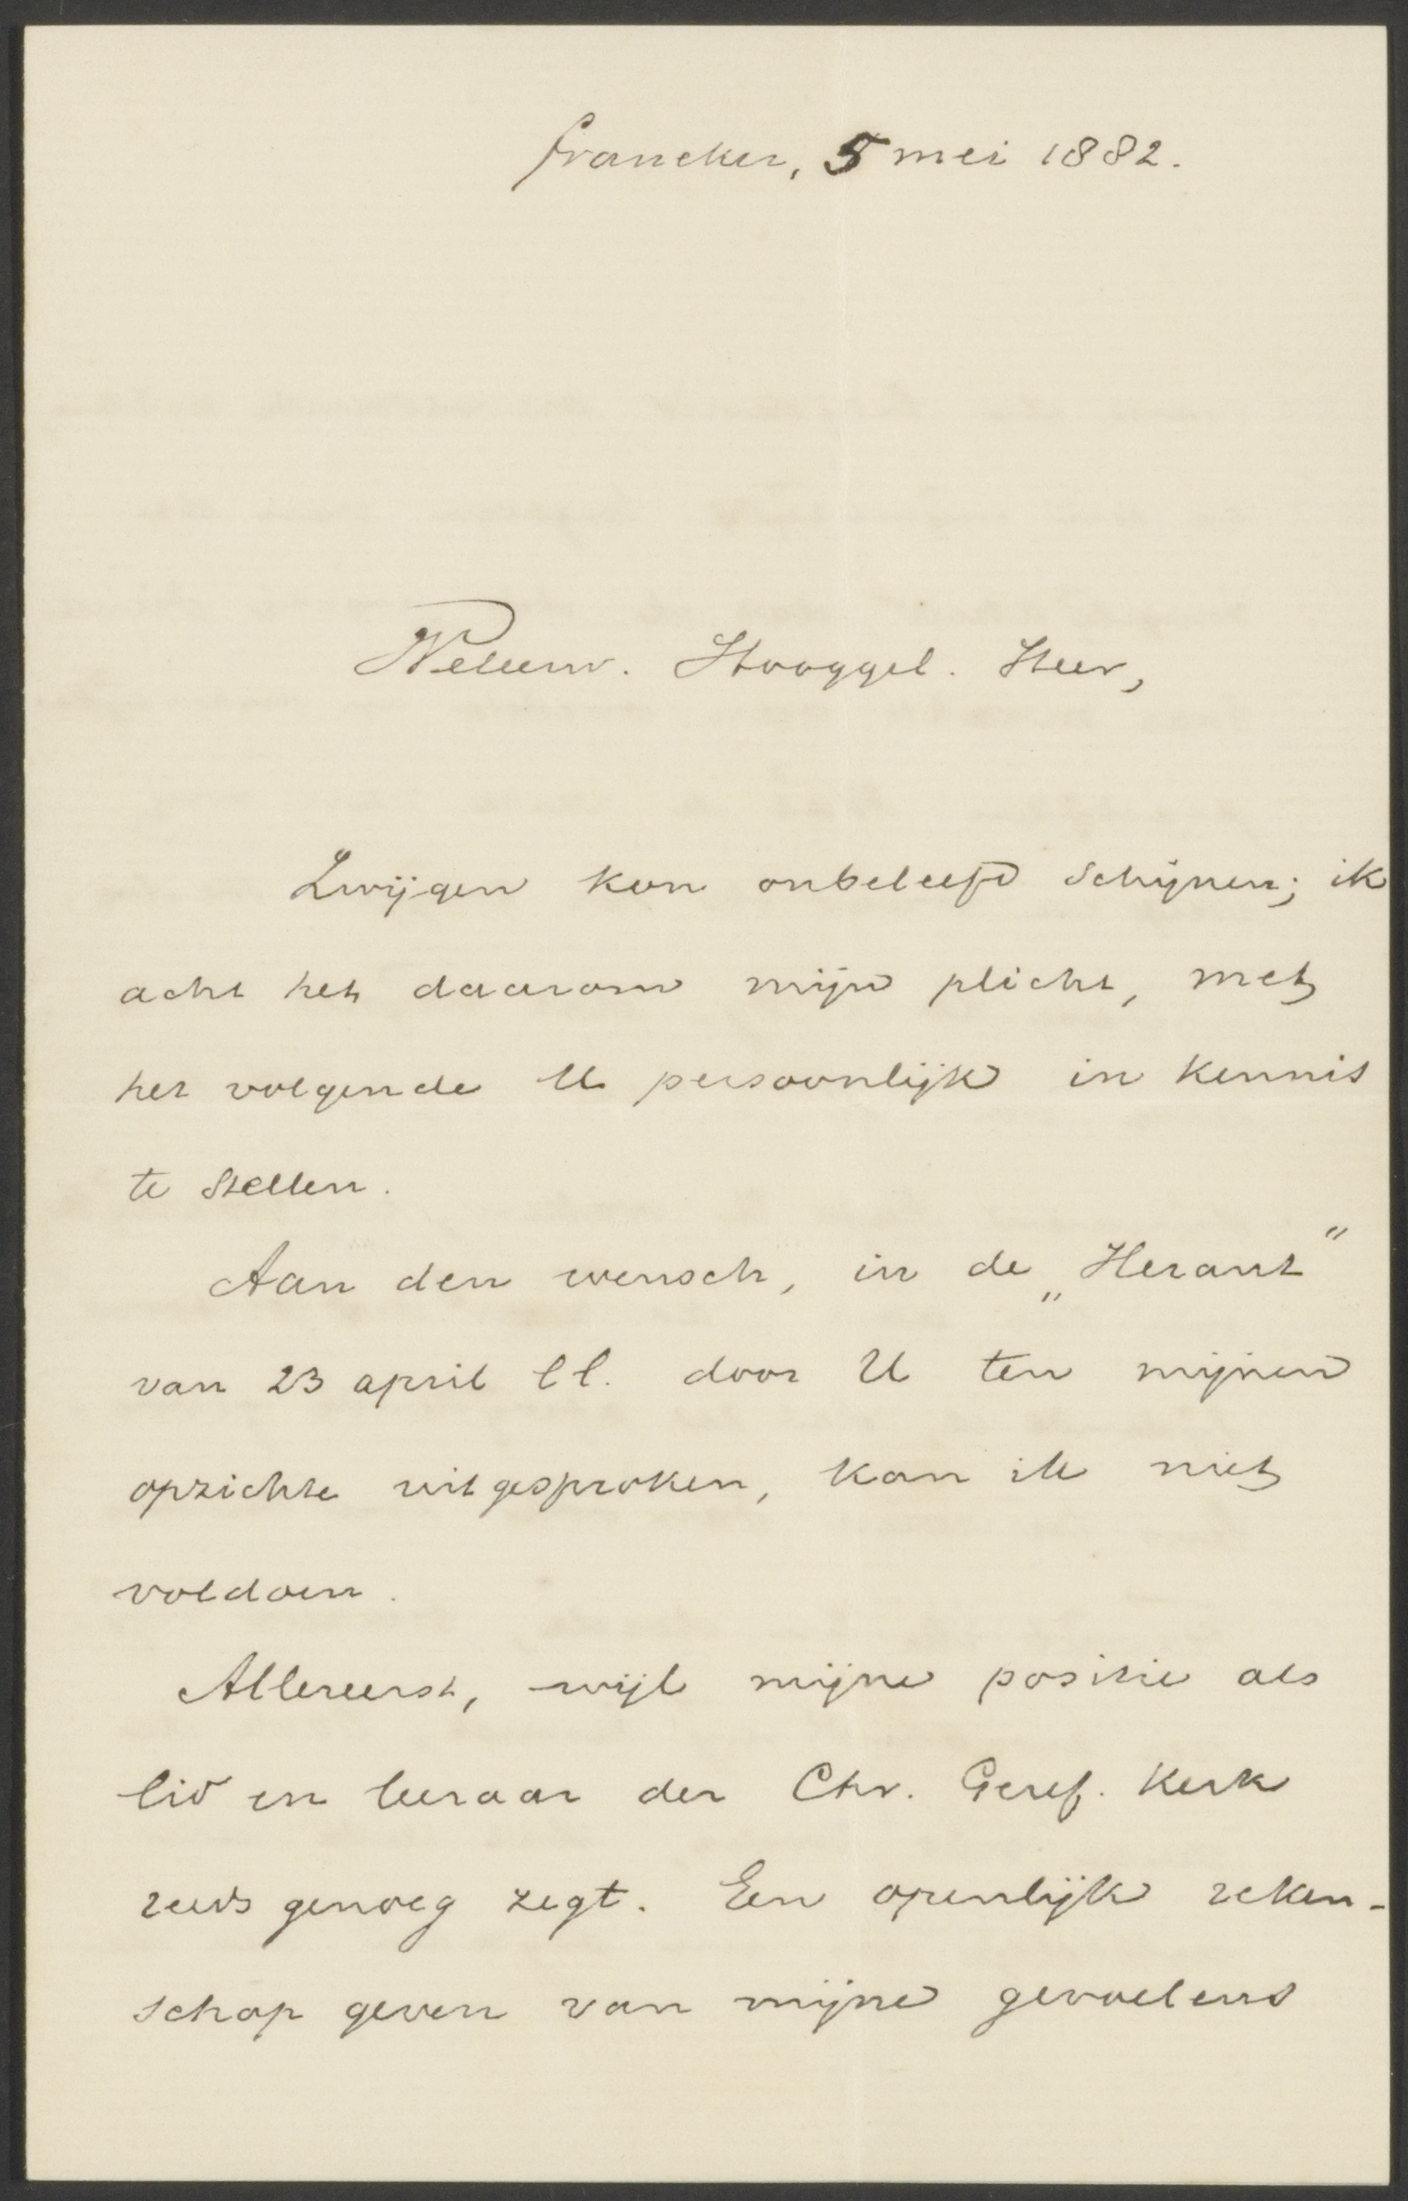 Franeker, 5 mei 1882.
Weleerw. Hooggel. Heer,
Zwijgen kon onbeleefd schijnen; ik
acht het daarom mijn plicht, met
het volgende U persoonlijk in kennis
te stellen.
Aan den wensch, in de „Heraut"
van 23 april ll. door U ten mijnen
opzichte uitgesproken, kan ik niet
voldoen.
Allereerst, wijl mijne positie als
lid en leeraar der Chr. Geref. Kerk
reeds genoeg zegt. Een openlijk reken-
schap geven van mijne gevoelens